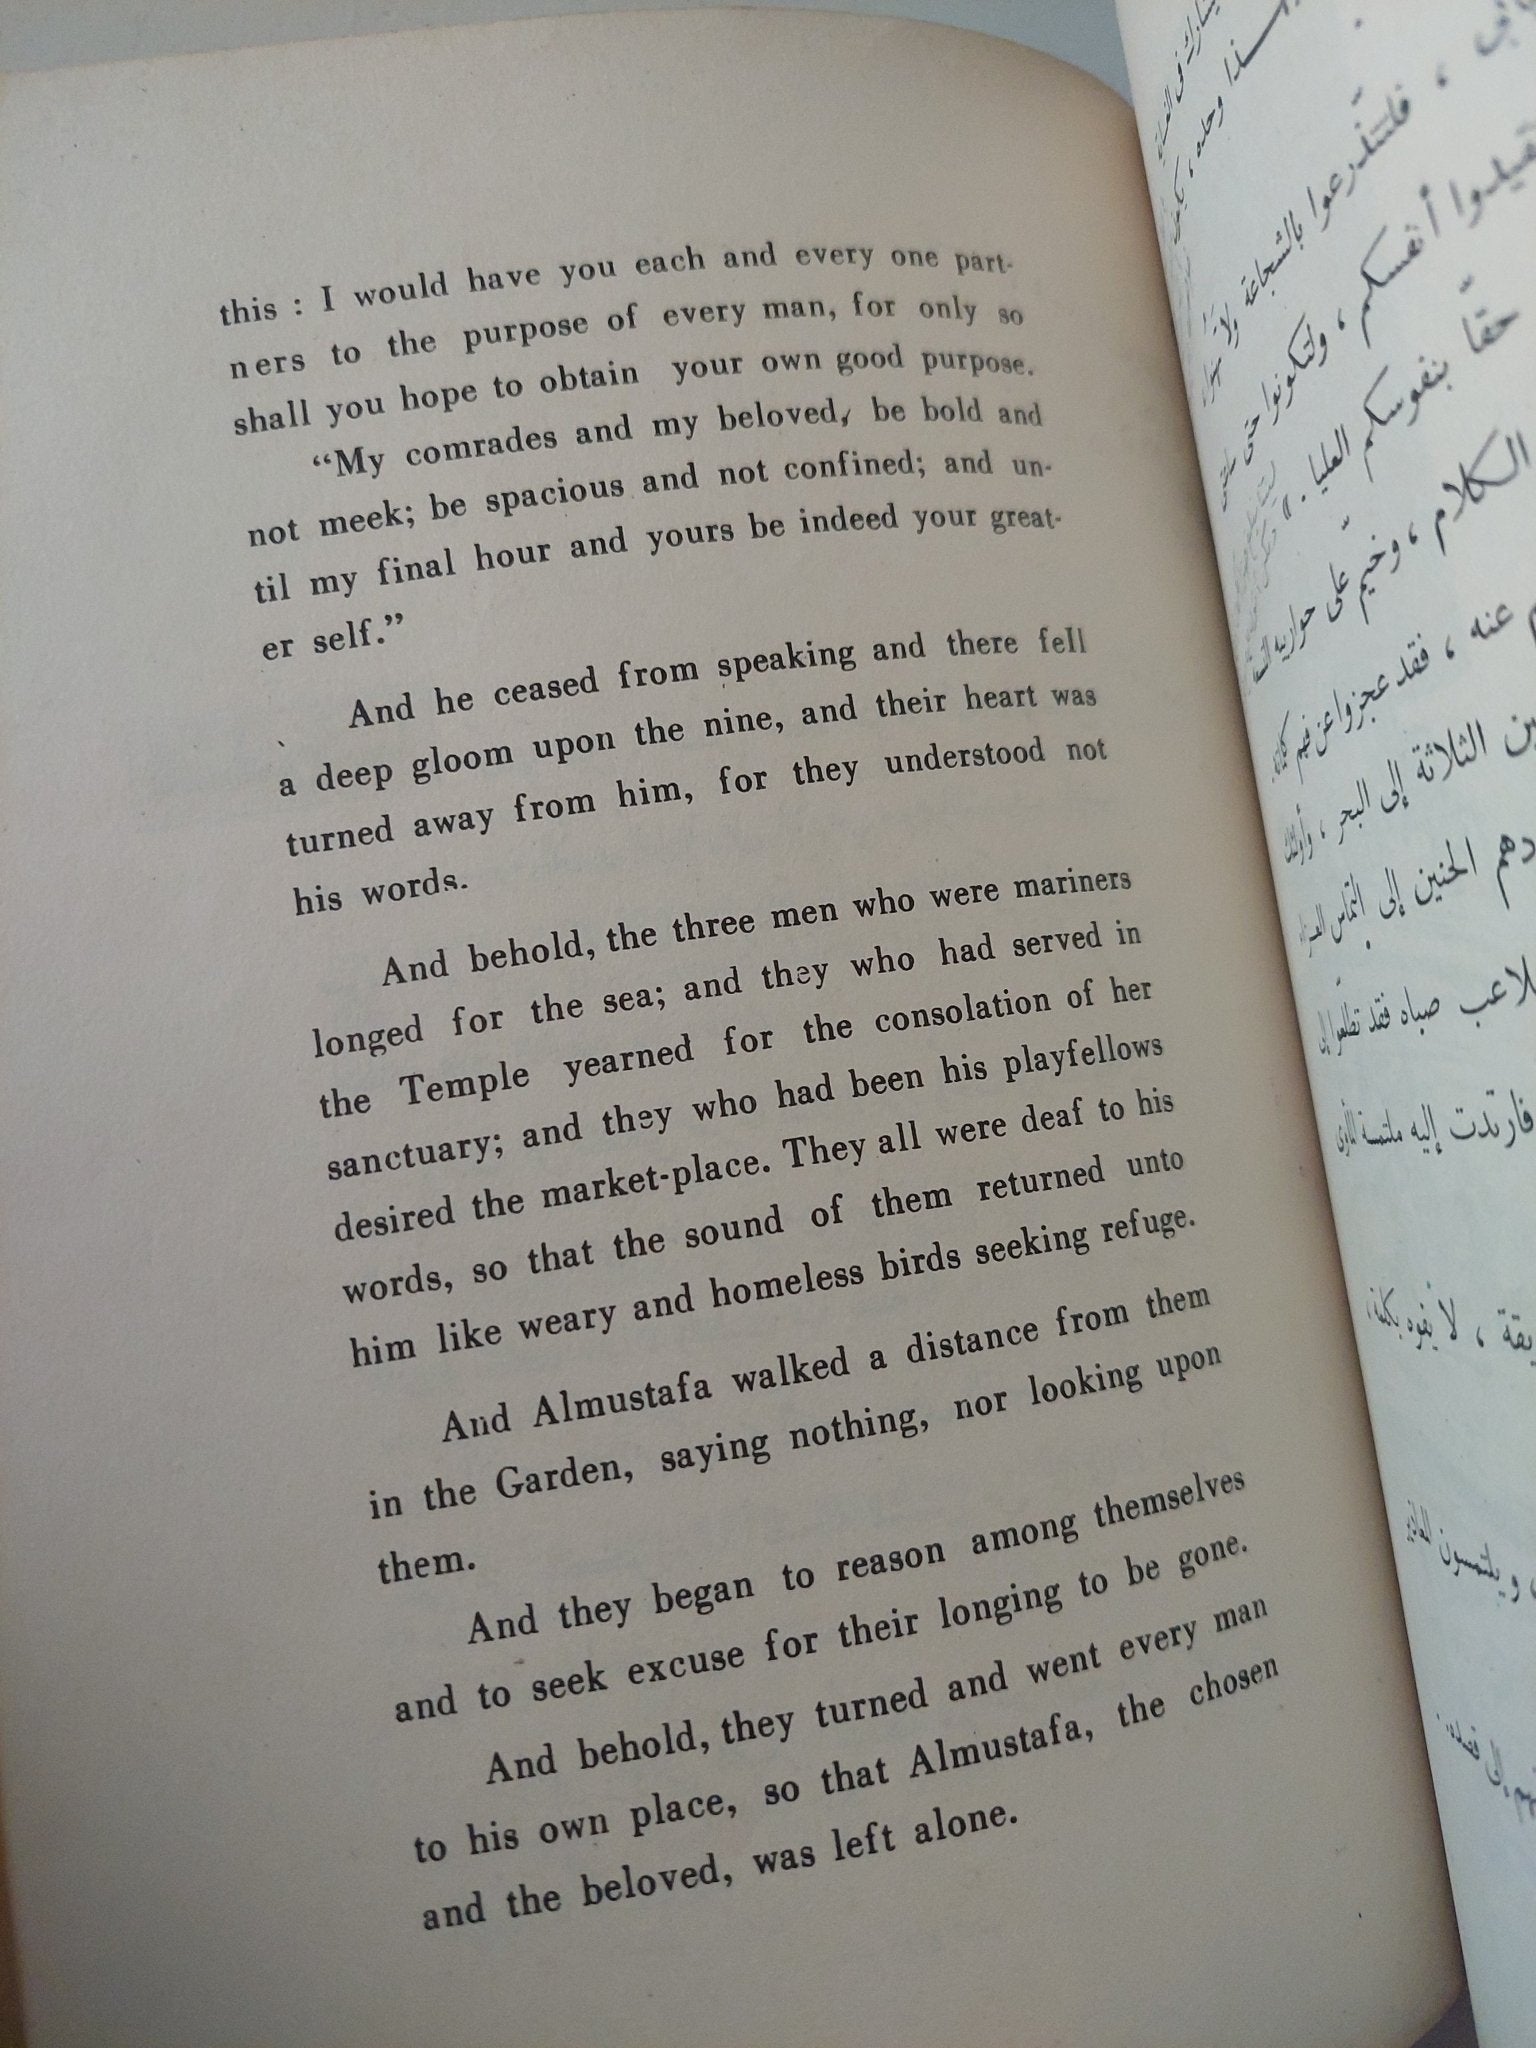 this : I would have you each and every one part-
ners to the purpose of every man, for only so
shall you hope to obtain your own good purpose.
“My comrades and my beloved, be bold and
not meek; be spacious and not confined; and un-
til my final hour and yours be indeed your great-
er self.”
And he ceased from speaking and there fell
a deep gloom upon the nine, and their heart was
turned away from him, for they understood not
his words.
And behold, the three men who were mariners
longed for the sea; and they who had served in
the Temple yearned for the consolation of her
sanctuary; and they who had been his playfellows
desired the market-place. They all were deaf to his
words, so that the sound of them returned unto
him like weary and homeless birds seeking refuge.
And Almustafa walked a distance from them
in the Garden, saying nothing, nor looking upon
them.
And they began to reason among themselves
and to seek excuse for their longing to be gone.
And behold, they turned and went every man
to his own place, so that Almustafa, the chosen
and the beloved, was left alone.
وحده ، يكون
، فلتتذرعوا بالشجاعة
أنفسكم ، ولتكونوا حتى
حقّا بنفوسكم العليا . »
الكلام ، وخيّم على حوارييه
عنه ، فقد عجزوا عن فهم
الثلاثة إلى البحر ، وأولئك
الحنين إلى التماس
صباه فقد تطلعوا إلى
فارتدت إليه ملتمسة المأوى
، لا يفوه بكلمة ،
ويلتمسون
إلى